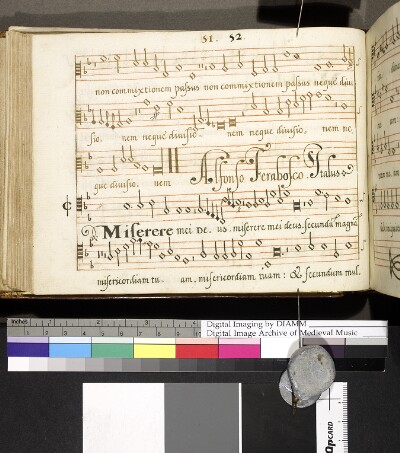 51. 52
non commixtionem passus non commixtionem passus neque diui
sio, nem neque diuisio, nem neque diuisio, nem ne,
que diuisio, nem Alfonso Ferabosco Italus
Miserere mei De, us. miserere mei deus. secundum magnã
misericordiam tu, am. misericordiam tuam: & secundum mul,
inches 1 2
Digital Imaging by DIAMM
Digital Image Archive of Medieval Music
QPCARD